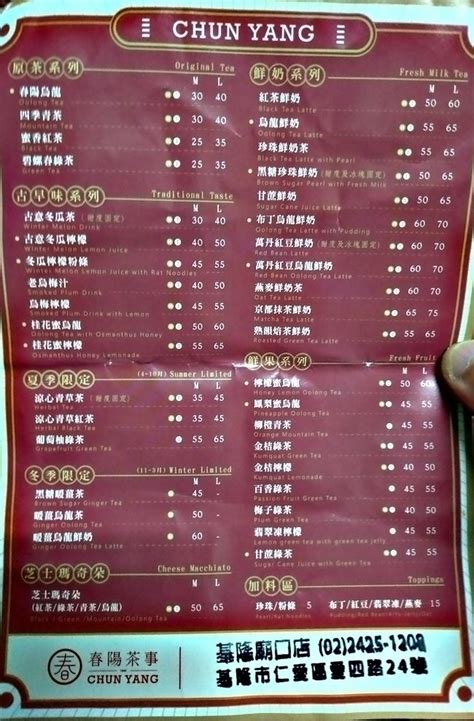 CHUN YANG
原茶系列 Original Tea
M L
春陽烏龍 30 40
Oolong Tea
四季青茶 30 40
Mountain Tea
蜜香紅茶 25 35
Black Tea
碧螺春綠茶 25 35
Green Tea
古早味系列 Traditional Taste
M L
古意冬瓜茶 (糖度固定) 30 40
Winter Melon Drink
古意冬瓜檸檬 40 50
Winter Melon Lemon Juice
冬瓜檸檬粉條 45 55
Winter Melon Lemon Juice with Rat Noodles
老烏梅汁 40 50
Smoked Plum Drink
烏梅檸檬 45 55
Smoked Plum Drink with Lemon
桂花蜜烏龍 50 60
Oolong Tea with Osmanthus Honey
桂花蜜檸檬 45 55
Osmanthus Honey Lemonade
夏季限定 (4-10月) Summer Limited
M L
涼心青草茶 (糖度固定) 35 45
Herbal Tea
涼心青草紅茶 35 45
Herbal Black Tea
葡萄柚綠茶 55 65
Grapefruit Green Tea
冬季限定 (11-3月) Winter Limited
M L
黑糖暖薑茶 45 -
Brown Sugar Ginger Tea
暖薑烏龍茶 50 -
Ginger Oolong Tea
暖薑烏龍鮮奶 60 -
Ginger Oolong Tea Latte
芝士瑪奇朵 Cheese Macchiato
M L
芝士瑪奇朵
(紅茶/綠茶/青茶/烏龍) 50 65
Black / Green /Mountain/Oolong Tea
春
春陽茶事
CHUN YANG
鮮奶系列 Fresh Milk Tea
M L
紅茶鮮奶 50 60
Black Tea Latte
烏龍鮮奶 55 65
Oolong Tea Latte
珍珠鮮奶茶 55 65
Black Tea Latte with Pearl
黑糖珍珠鮮奶 (糖度及冰塊固定) 55 65
Brown Sugar Pearl with Fresh Milk
甘蔗鮮奶 55 65
Sugar Cane Juice Latte
布丁烏龍鮮奶 60 70
Oolong Tea Latte with Pudding
萬丹紅豆鮮奶 (糖度及冰塊固定) 60 70
Red Bean Latte
萬丹紅豆烏龍鮮奶 60 70
Red Bean Oolong Tea Latte
燕麥鮮奶茶 55 65
Oat Tea Latte
京都抹茶鮮奶 55 65
Matcha Tea Latte
熟韻焙茶鮮奶 55 65
Roasted Green Tea Latte
鮮果系列 Fresh Fruit
M L
檸檬蜜烏龍 50 60
Honey Lemon Oolong Tea
鳳梨蜜烏龍 45 55
Pineapple Oolong Tea
柳橙青茶 45 55
Orange Mountain Tea
金桔綠茶 45 55
Kumquat Green Tea
金桔檸檬 45 55
Kumquat Lemonade
百香綠茶 45 55
Passion Fruit Green Tea
梅子綠茶 40 50
Plum Green Tea
翡翠凍檸檬 45 55
Lemon Green tea with green tea jelly
甘蔗綠茶 50 60
Sugar Cane Juice with Green Tea
加料區 Toppings
珍珠/粉條 5 布丁/紅豆/翡翠凍/燕麥 15
Pearl/Rat Noodles
基隆廟口店 (02)2425-1208
基隆市仁愛區愛四路24號